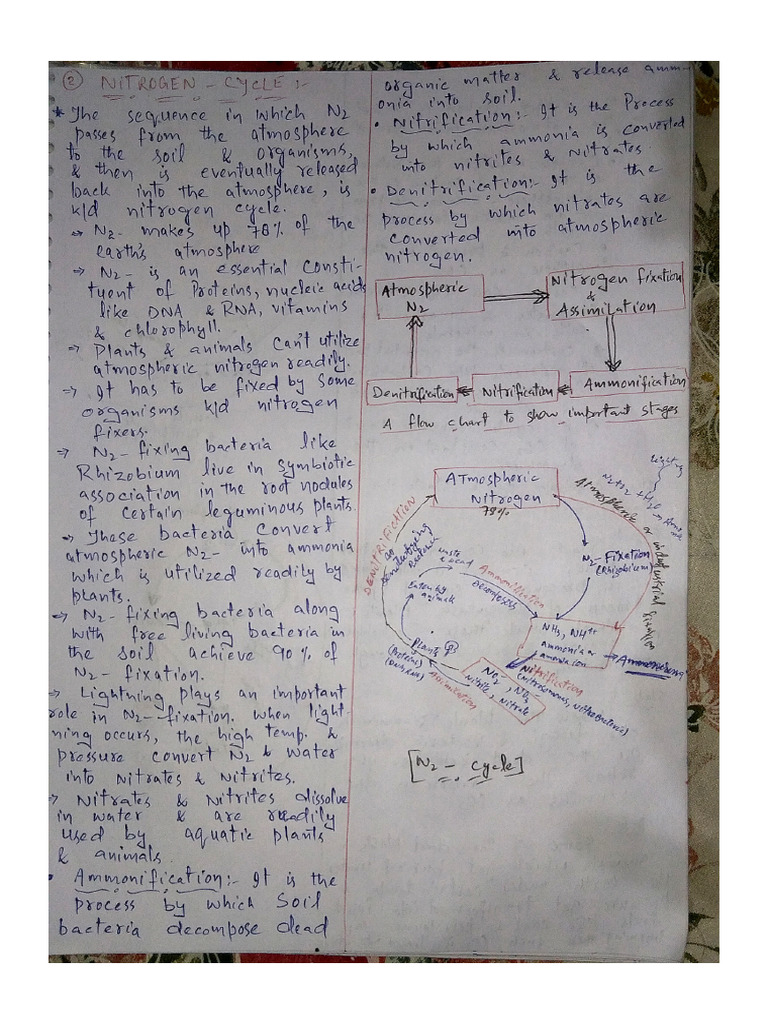 ② NITROGEN - CYCLE :-
* The sequence in which N2
passes from the atmosphere
to the soil & organisms,
& then is eventually released
back into the atmosphere, is
k/d nitrogen cycle.
⇒ N2- makes up 78% of the
earth's atmosphere
⇒ N2- is an essential consti-
tuent of Proteins, nucleic acids
like DNA & RNA, vitamins
& chlorophyll.
⇒ Plants & animals can't utilize
atmospheric nitrogen readily.
⇒ It has to be fixed by some
organisms k/d nitrogen
fixers.
⇒ N2- fixing bacteria like
Rhizobium live in symbiotic
association in the root nodules
of certain leguminous plants.
⇒ These bacteria convert
atmospheric N2- into ammonia
which is utilized readily by
plants.
⇒ N2- fixing bacteria along
with free living bacteria in
the soil achieve 90% of
N2- fixation.
⇒ Lightning plays an important
role in N2- fixation. when light-
ning occurs, the high temp. &
pressure convert N2 & water
into Nitrates & Nitrites.
⇒ Nitrates & Nitrites dissolve
in water & are readily
used by aquatic plants
& animals.
• Ammonification:- It is the
process by which soil
bacteria decompose dead
organic matter & release amm-
onia into soil.
• Nitrification:- It is the Process
by which ammonia is converted
into nitrites & Nitrates.
• Denitrification:- It is the
process by which nitrates are
converted into atmospheric
nitrogen.
Atmospheric
N2
Nitrogen fixation
&
Assimilation
Denitrification
Nitrification
Ammonification
A flow chart to show important stages
Lighting
Atmospheric
Nitrogen
78%
DENITRIFICATION
Atmospheric or industrial fixation
N2-Fixation
(Rhizobium)
waste
& dead
Ammonification
Decomposers
Eaten by
animals
NH3, NH4+
ammonia or
Plants
(Proteins)
Assimilation
NO2-, NO3
Nitrite, Nitrate
Nitrification
[N2 - cycle]